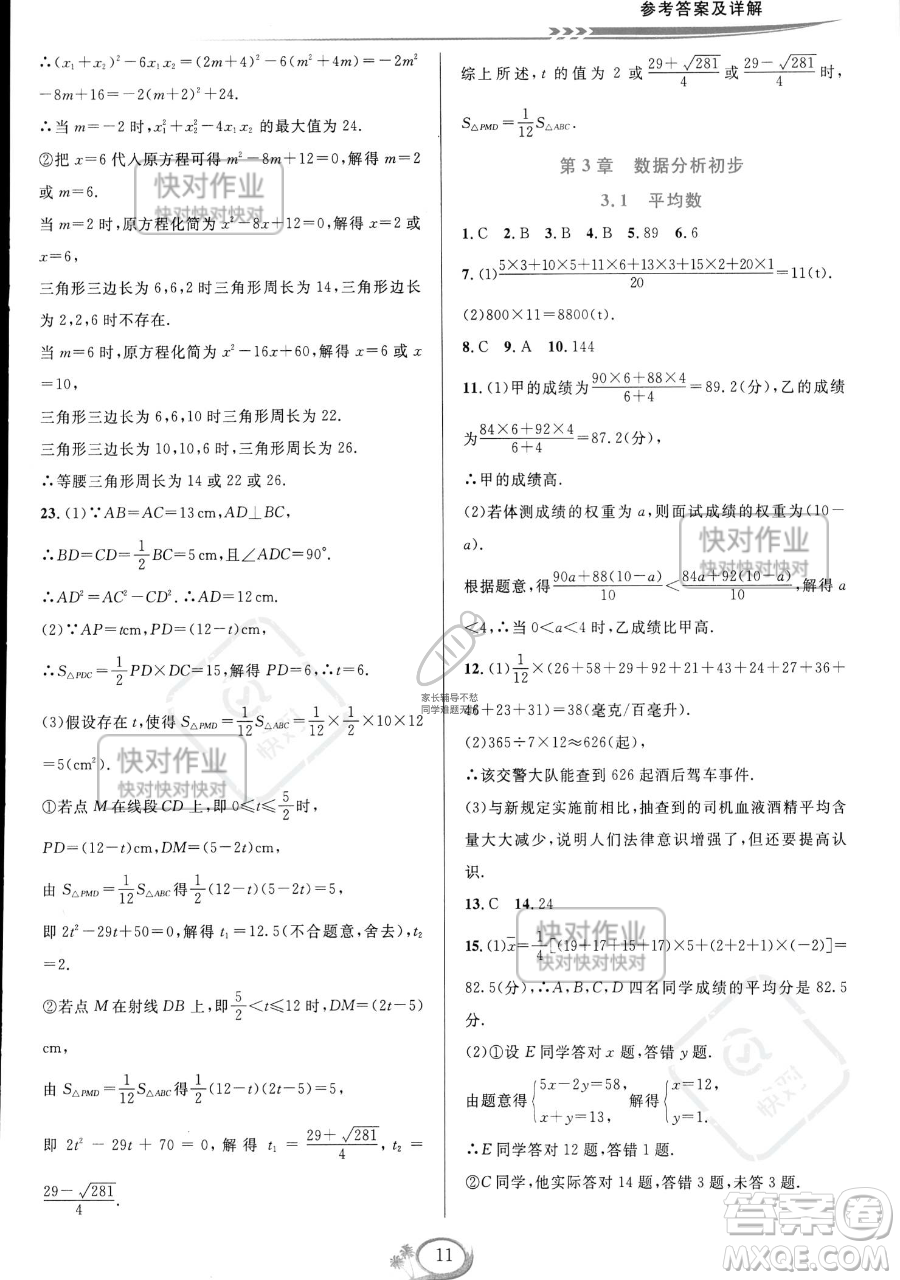 参考答案及详解
∴(x₁+x₂)²-6x₁x₂=(2m+4)²-6(m²+4m)=-2m²
-8m+16=-2(m+2)²+24.
∴当 m=-2 时,x₁²+x₂²-4x₁x₂ 的最大值为 24.
②把 x=6 代入原方程可得 m²-8m+12=0,解得 m=2
或 m=6.
当 m=2 时,原方程化简为 x²-8x+12=0,解得 x=2 或
x=6,
三角形三边长为 6,6,2 时三角形周长为 14,三角形边长
为 2,2,6 时不存在.
当 m=6 时,原方程化简为 x²-16x+60,解得 x=6 或 x
=10,
三角形三边长为 6,6,10 时三角形周长为 22.
三角形三边长为 10,10,6 时三角形周长为 26.
∴等腰三角形周长为 14 或 22 或 26.
23.(1)∵AB=AC=13 cm,AD⊥BC,
∴BD=CD=1/2 BC=5 cm,且∠ADC=90°.
∴AD²=AC²-CD².∴AD=12 cm.
(2)∵AP=tcm,PD=(12-t)cm,
∴S△PDC=1/2 PD×DC=15,解得 PD=6,∴t=6.
(3)假设存在 t,使得 S△PMD=1/12 S△ABC=1/12×1/2×10×12
=5(cm²).
①若点 M 在线段 CD 上,即 0≤t≤5/2 时,
PD=(12-t)cm,DM=(5-2t)cm,
由 S△PMD=1/12 S△ABC 得 1/2(12-t)(5-2t)=5,
即 2t²-29t+50=0,解得 t₁=12.5(不合题意,舍去),t₂
=2.
②若点 M 在射线 DB 上,即 5/2<t≤12 时,DM=(2t-5)
cm,
由 S△PMD=1/12 S△ABC 得 1/2(12-t)(2t-5)=5,
即 2t²-29t+70=0,解得 t₁=(29+√281)/4,t₂=
(29-√281)/4.
综上所述,t 的值为 2 或 (29+√281)/4 或 (29-√281)/4 时,
S△PMD=1/12 S△ABC.
第 3 章 数据分析初步
3.1 平均数
1.C 2.B 3.B 4.B 5.89 6.6
7.(1)(5×3+10×5+11×6+13×3+15×2+20×1)/20=11(t).
(2)800×11=8800(t).
8.C 9.A 10.144
11.(1)甲的成绩为(90×6+88×4)/(6+4)=89.2(分),乙的成绩
为(84×6+92×4)/(6+4)=87.2(分),
∴甲的成绩高.
(2)若体测成绩的权重为 a,则面试成绩的权重为(10-
a).
根据题意,得(90a+88(10-a))/10<(84a+92(10-a))/10,解得 a
<4,∴当 0<a<4 时,乙成绩比甲高.
12.(1)1/12×(26+58+29+92+21+43+24+27+36+
46+23+31)=38(毫克/百毫升).
(2)365÷7×12≈626(起),
∴该交警大队能查到 626 起酒后驾车事件.
(3)与新规定实施前相比,抽查到的司机血液酒精平均含
量大大减少,说明人们法律意识增强了,但还要提高认
识.
13.C 14.24
15.(1)x̄=1/4[(19+17+15+17)×5+(2+2+1)×(-2)]=
82.5(分),∴A,B,C,D 四名同学成绩的平均分是 82.5
分.
(2)①设 E 同学答对 x 题,答错 y 题.
由题意得{5x-2y=58, x+y=13, 解得{x=12, y=1.
∴E 同学答对 12 题,答错 1 题.
②C 同学,他实际答对 14 题,答错 3 题,未答 3 题.
快对作业
快对快对快对
快对作业
快对快对快对
快对作业
快对快对快对
快对作业
快对快对快对
快对
快对
家长辅导不愁
11
答案卷
MXQE.COM